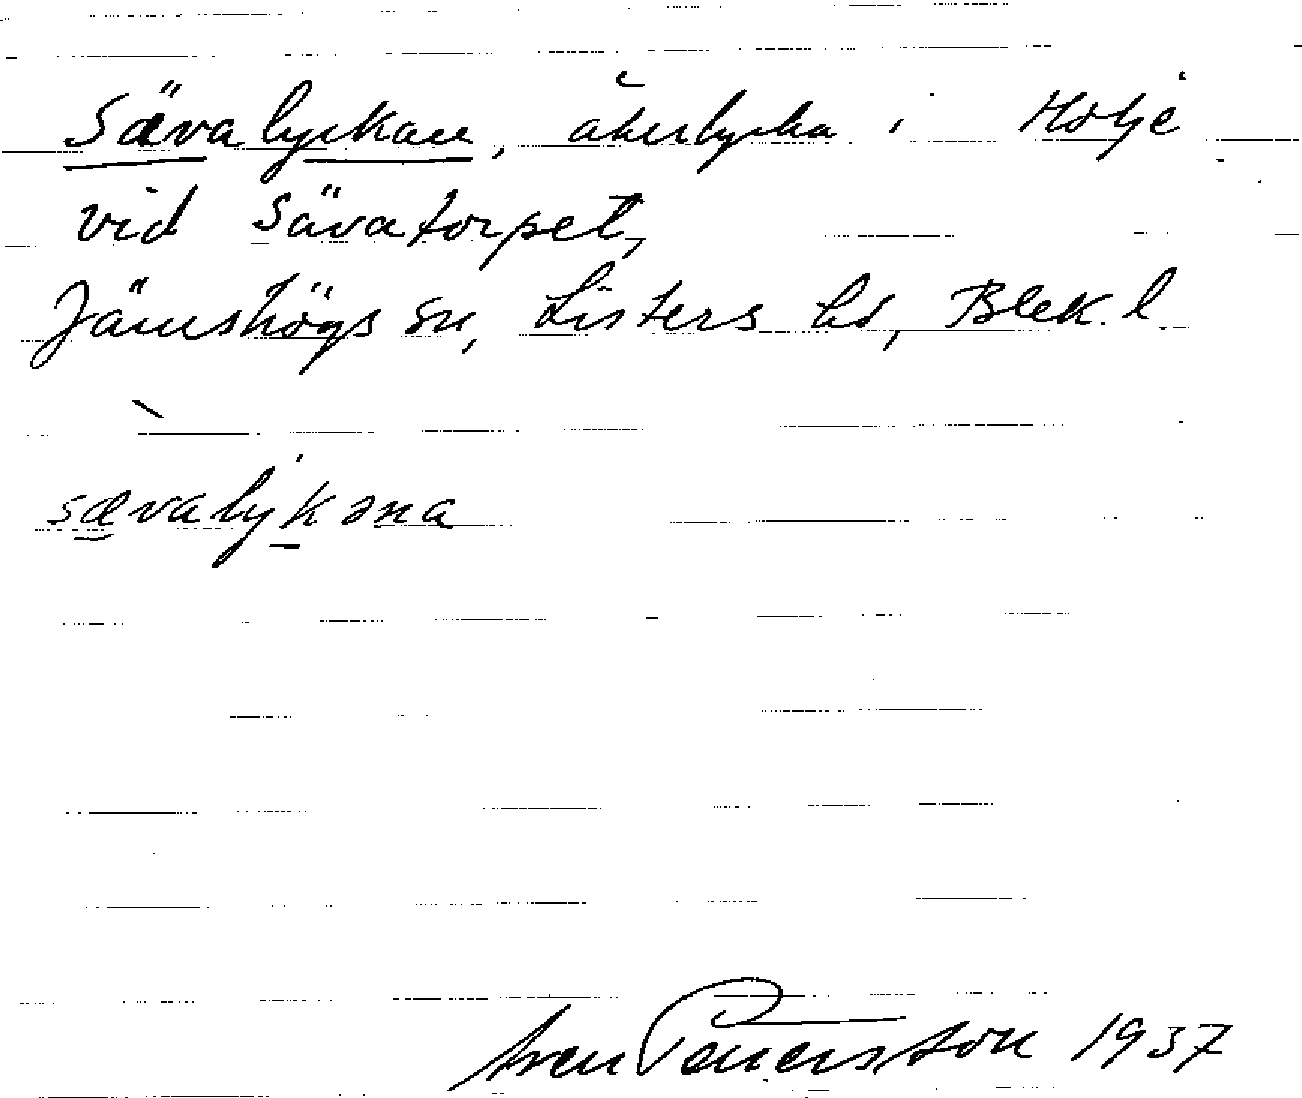 Sävalyckan, åkerlycka i Holje
vid Sävatorpet,
Jämshögs sn, Listers hd, Blek. l.
sævalykəna
Sven Pettersson 1937